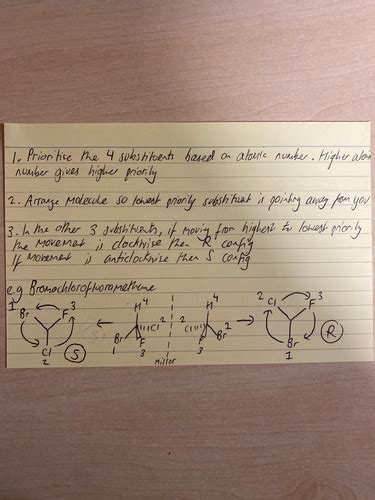 1. Prioritise the 4 substituents based on atomic number. Higher atomic
number gives higher priority
2. Arrange molecule so lowest priority substituent is pointing away from you
3. In the other 3 substituents, if moving from highest to lowest priority
the movement is clockwise then R config
If movement is anticlockwise then S config
e.g Bromochlorofluoromethane
1 Br F 3 Cl 2 S
H 4 Cl 2 Br 1 F 3
mirror
H 4 2 Cl Br F 3
2 Cl F 3 Br 1 R